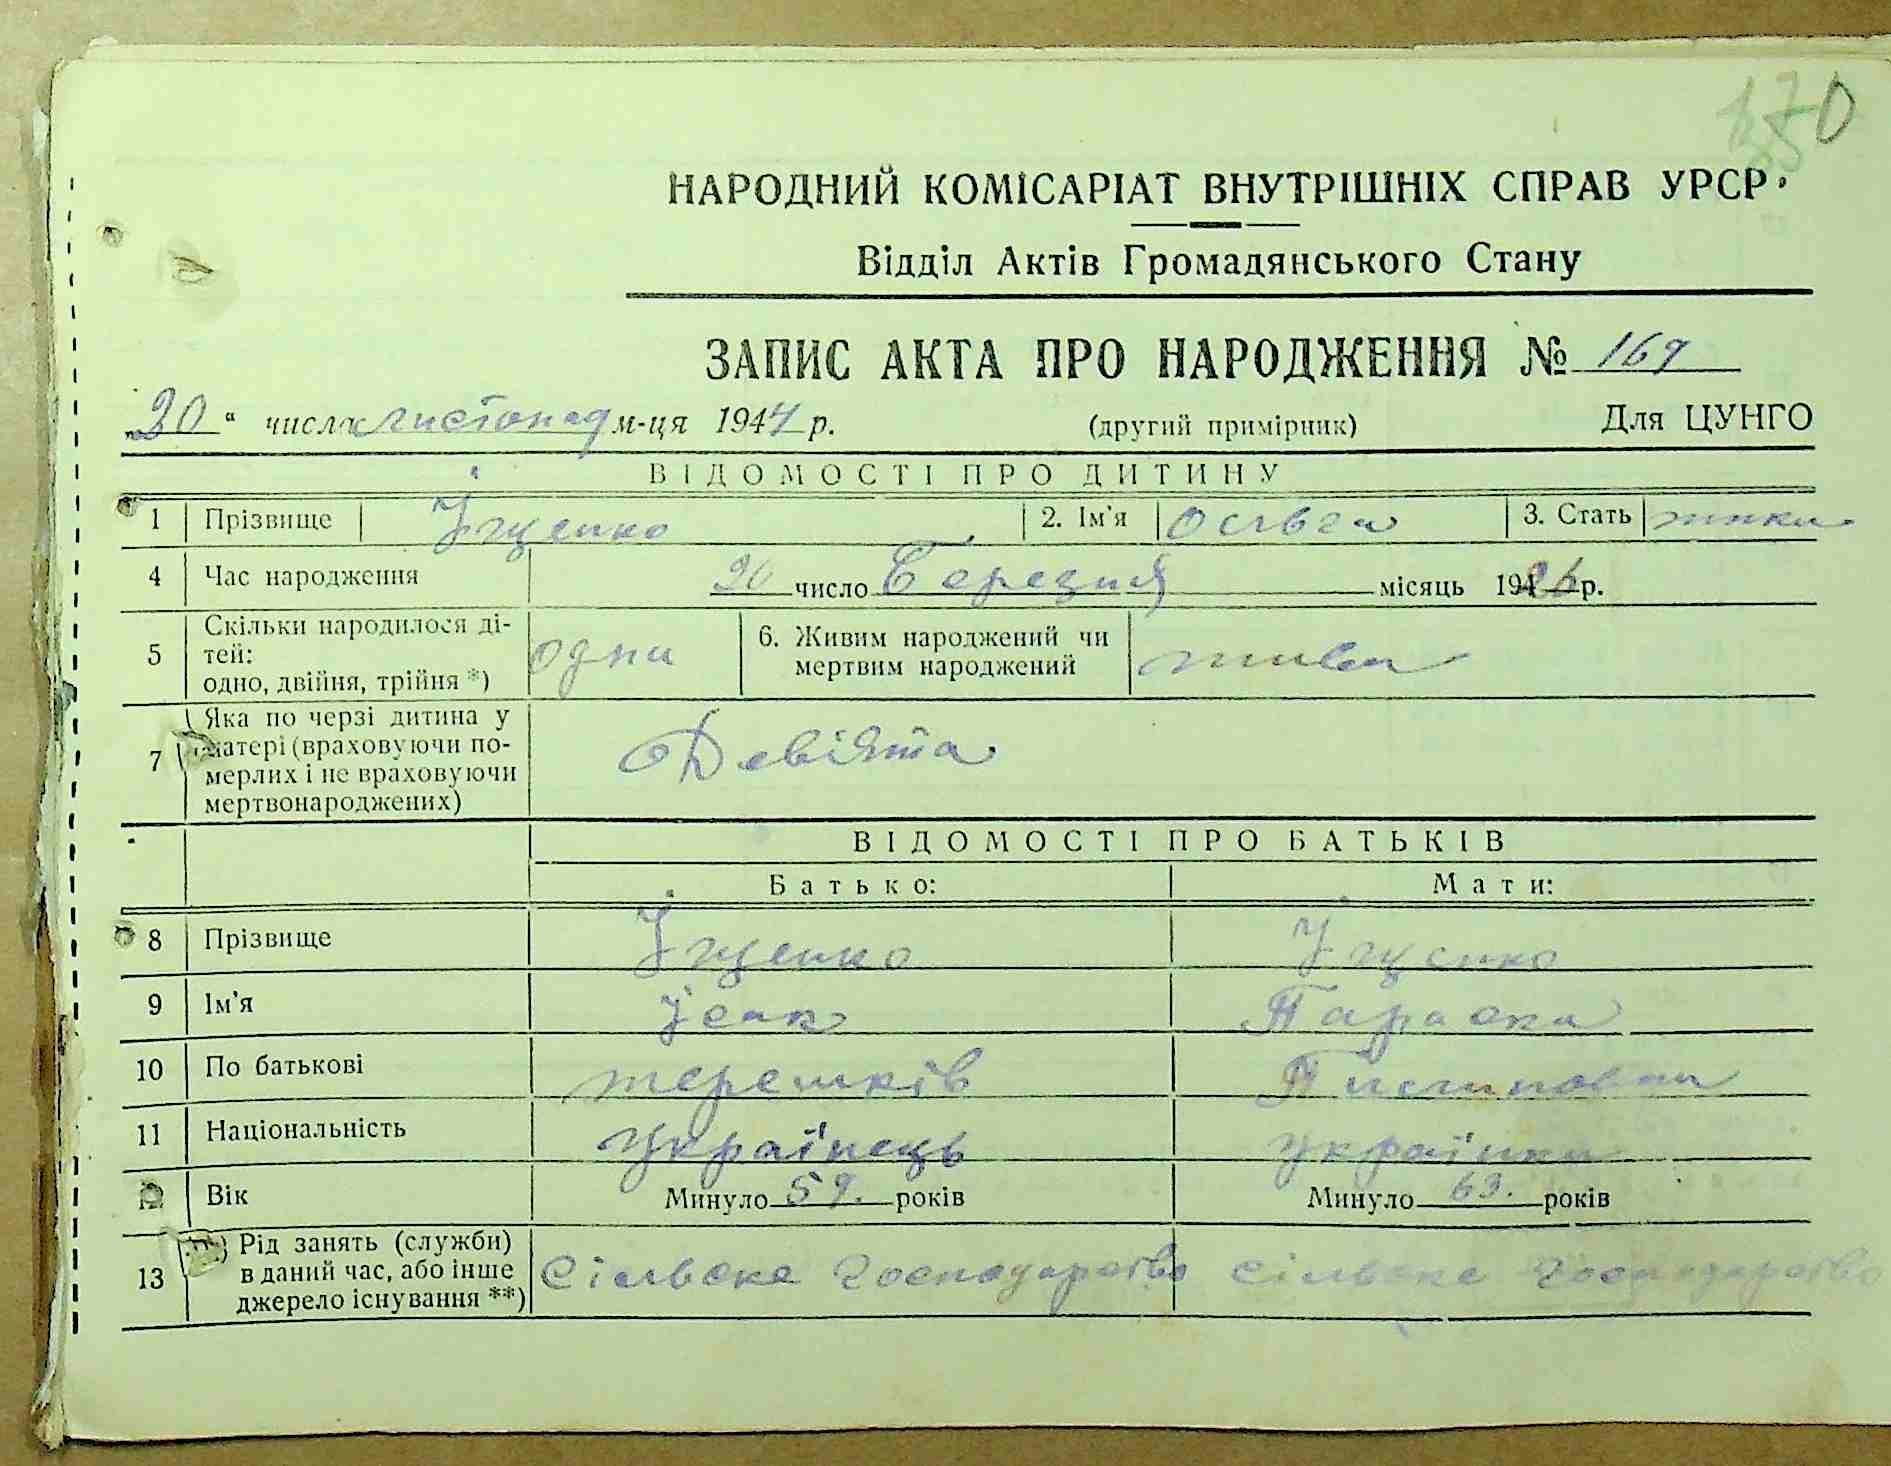 370
НАРОДНИЙ КОМІСАРІАТ ВНУТРІШНІХ СПРАВ УРСР
Відділ Актів Громадянського Стану
ЗАПИС АКТА ПРО НАРОДЖЕННЯ № 169
„20“ числа листопад м-ця 1944 р. (другий примірник) Для ЦУНГО
ВІДОМОСТІ ПРО ДИТИНУ
1 Прізвище Іщенко 2. Ім'я Ольга 3. Стать жінка
4 Час народження 20 число Березня місяць 1926 р.
5 Скільки народилося ді-
тей:
одно, двійня, трійня *) одна 6. Живим народжений чи
мертвим народжений жива
7 Яка по черзі дитина у
матері (враховуючи по-
мерлих і не враховуючи
мертвонароджених) Девіята
ВІДОМОСТІ ПРО БАТЬКІВ
Батько: Мати:
8 Прізвище Іщенко Іщенко
9 Ім'я Ісак Параска
10 По батькові терешків
11 Національність українець українка
12 Вік Минуло 59. років Минуло 63. років
13 Рід занять (служби)
в даний час, або інше
джерело існування **) Сільске господарство сільске господарство